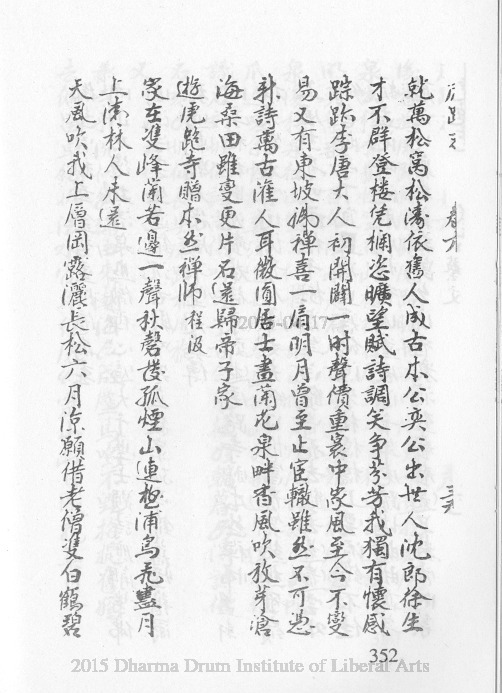 虎跑志　卷下　藝文　三六
乾萬松窩松濤依舊人成古本公奕公出世人沈郎徐生
才不群登楼凭欄恣曠望賦詩調笑争芬芳我獨有懷感
踪跡李唐大人初開闢一时聲價重寰中家風至今不變
易又有東坡爲禪喜一肩明月曾至止宦轍雖然不可憑
新詩萬古滙人耳微圓居士畫蘭花泉畔香風吹放芽滄
海桑田雖變更片石還歸帝子家
遊虎跑寺贈本然禪师程汲
家在雙峰蘭若邊一聲秋磬發孤煙山連極浦鳥飛盡月
上青林人未還
天風吹我上層岡露灑長松六月凉願借老僧雙白鶴碧
2015-04-17
352
2015 Dharma Drum Institute of Liberal Arts